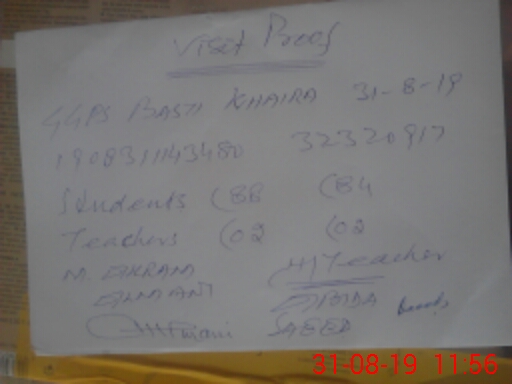 Visit Proof
GGPS BASTI KHAIRA 31-8-19
190831143480 32320917
Students (88 (84
Teachers (02 (02
M. IKRAM H/Teacher
ABIDA
SAEED
31-08-19 11:56